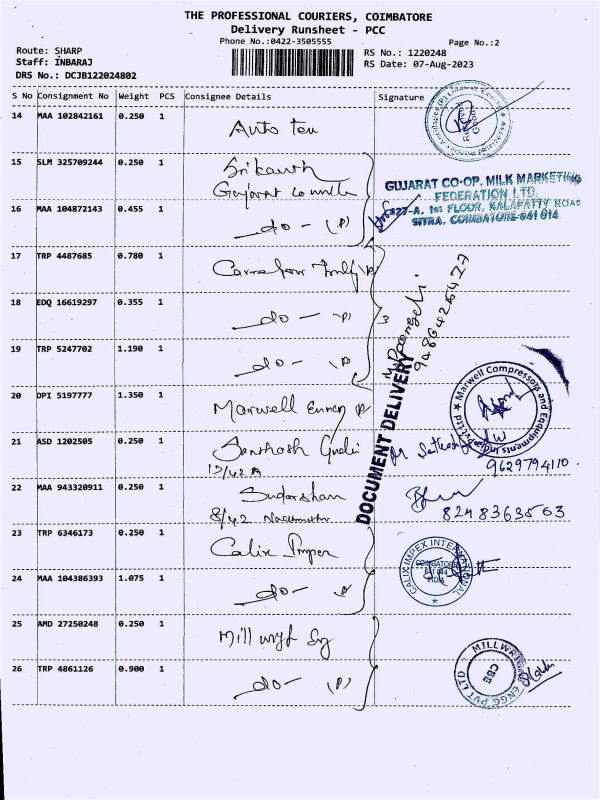 THE PROFESSIONAL COURIERS, COIMBATORE
Delivery Runsheet - PCC
Phone No.:0422-3505555
Page No.:2
Route: SHARP
Staff: INBARAJ
DRS No.: DCJB122024802
RS No.: 1220248
RS Date: 07-Aug-2023
S No Consignment No Weight PCS Consignee Details Signature
14 MAA 102842161 0.250 1
Auto Teu
15 SLM 325709244 0.250 1 Srikanth
Gujarat co milk
GUJARAT CO-OP. MILK MARKETING
FEDERATION LTD.
1st FLOOR, KALAPATTY ROAD
SITRA, COIMBATORE-641 014
16 MAA 104872143 0.455 1
do - (P)
17 TRP 4487685 0.780 1
18 EDQ 16619297 0.355 1
do - (P)
19 TRP 5247702 1.190 1
do - (P)
9486426427
DOCUMENT DELIVERY
20 DPI 5197777 1.350 1
Marwell
Marwell Compressors and Equipments India Pvt Ltd
21 ASD 1202505 0.250 1 Santhosh
12/42 A
9629794110
22 MAA 943320911 0.250 1 Sudarshan
8/42
8248363563
23 TRP 6346173 0.250 1
Calix Impex
CALIX IMPEX INTERNATIONAL
COIMBATORE
641 014
INDIA
24 MAA 104386393 1.075 1
do -
25 AMD 27250248 0.250 1
Mill wryt Eng
MILLWRIGHT ENGG PVT LTD
CBE
26 TRP 4861126 0.900 1
do - (P)